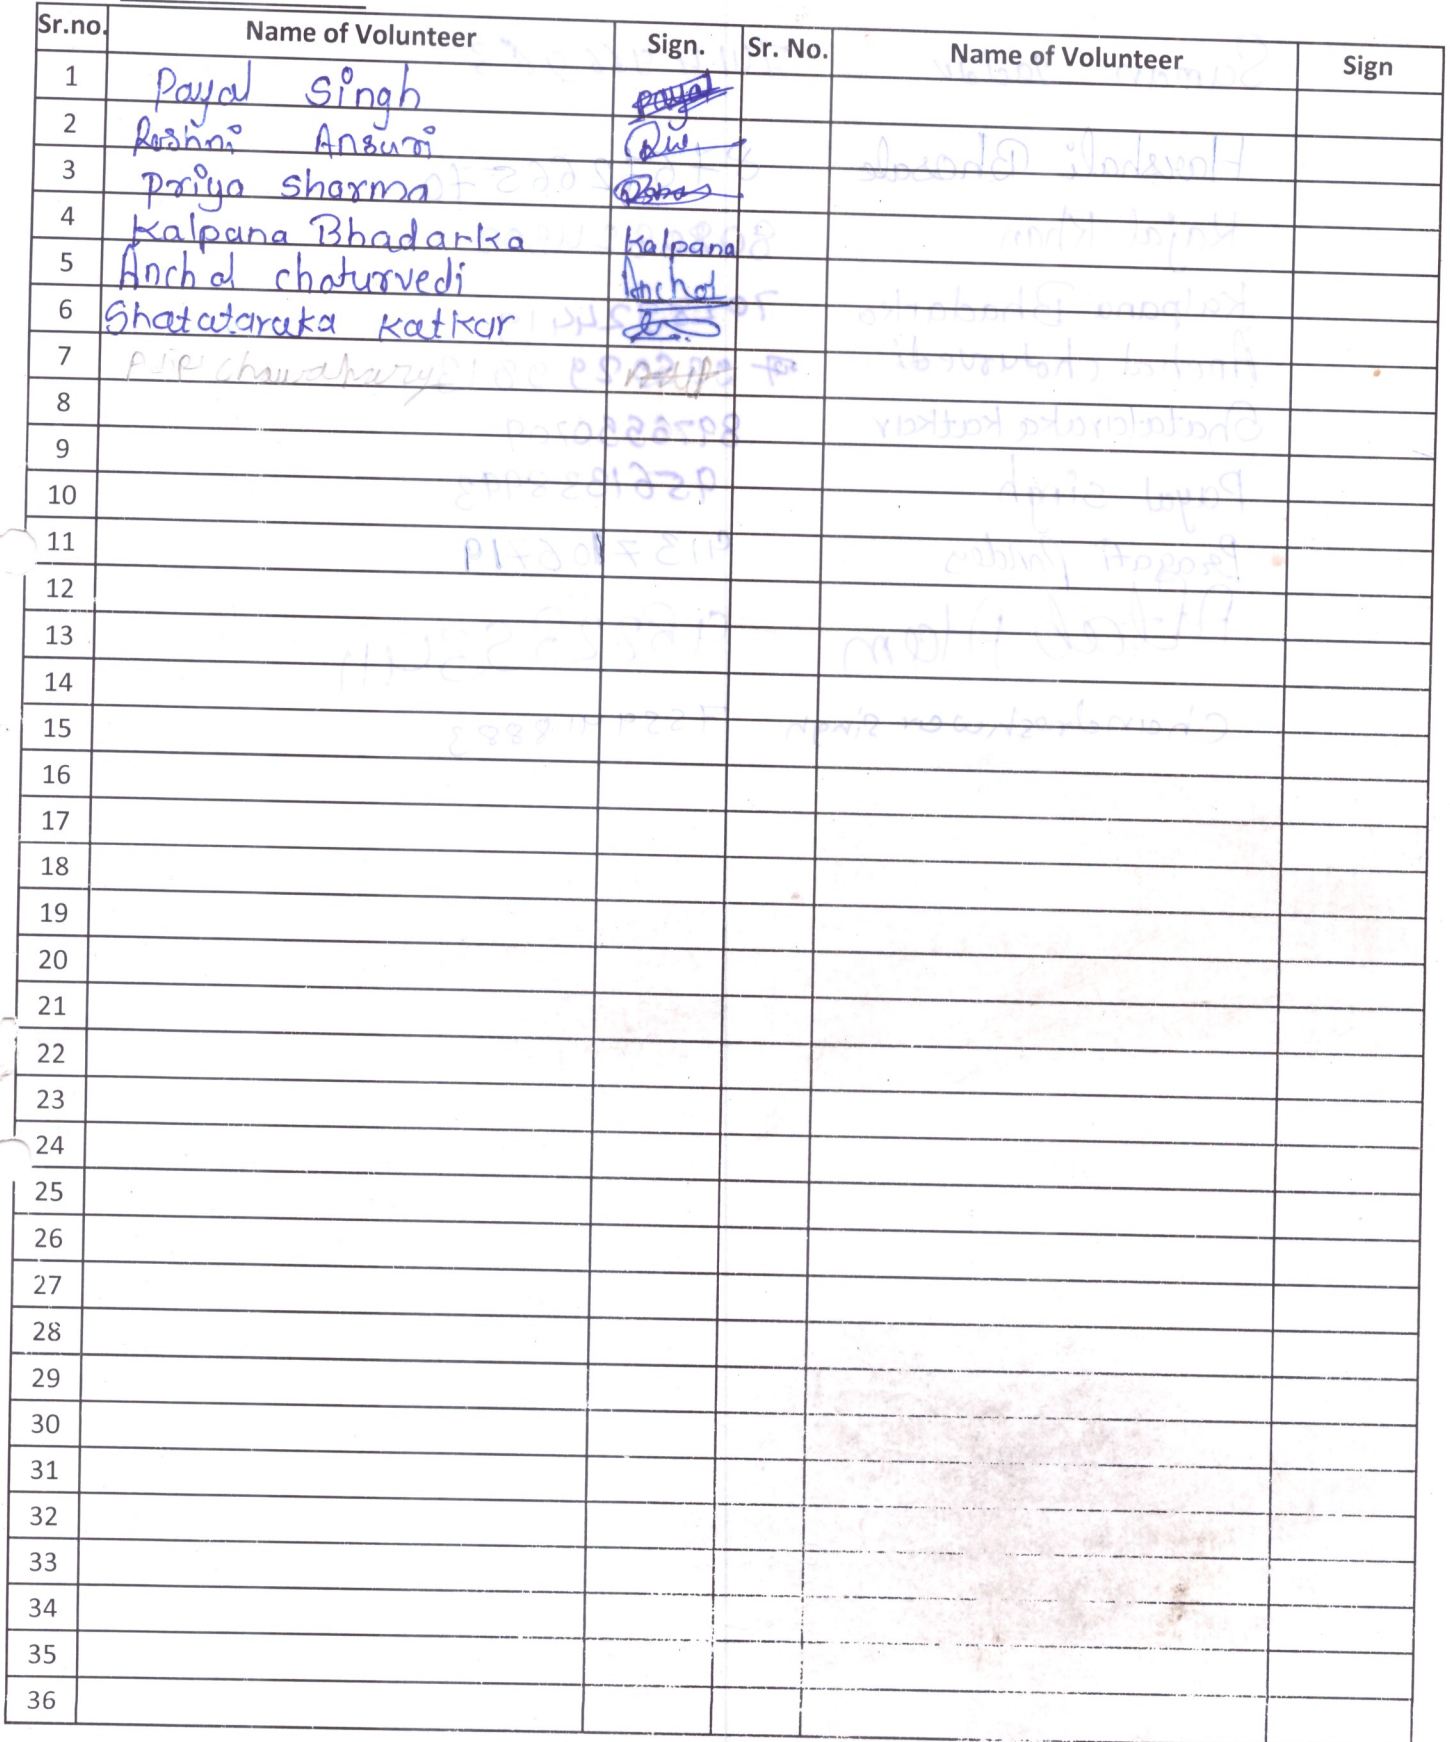 Sr.no. Name of Volunteer Sign. Sr. No. Name of Volunteer Sign
1 Payal Singh Payal
2 Roshni Ansuri
3 Priya Sharma
4 Kalpana Bhadarka Kalpana
5 Anchal chaturvedi Anchal
6 Shatataraka Katkar
7
8
9
10
11
12
13
14
15
16
17
18
19
20
21
22
23
24
25
26
27
28
29
30
31
32
33
34
35
36